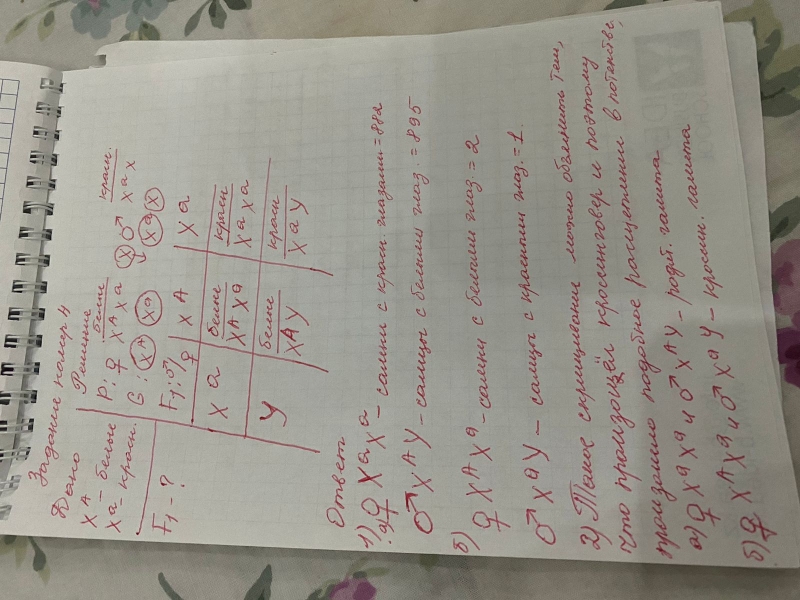 Задание номер 4
Дано
Решение
X^A - белые
X^a - красн.
F₁ - ?
белые
красн.
P: ♀ X^A X^a (x) ♂ X^a X
G: (X^A) (X^a) (X^a) (X)
F₁: ♂/♀ | X^A | X^a
X^a | белые X^A X^a | красн X^a X^a
Y | белые X^A Y | красн X^a Y
Ответ
1) а) ♀ X^a X^a - самки с красн. глазами = 882
♂ X^A Y - самцы с белыми глаз. = 895
б) ♀ X^A X^a - самки с белыми глаз. = 2
♂ X^a Y - самцы с красным глаз. = 1.
2) Такое скрищивание можно объяснить тем,
что произошёл кросинговер и поэтому
произошло подобное расщепление в потомстве,
а) ♀ X^a X^a и ♂ X^A Y - родит. гамета
б) ♀ X^A X^a и ♂ X^a Y - кросин. гамета